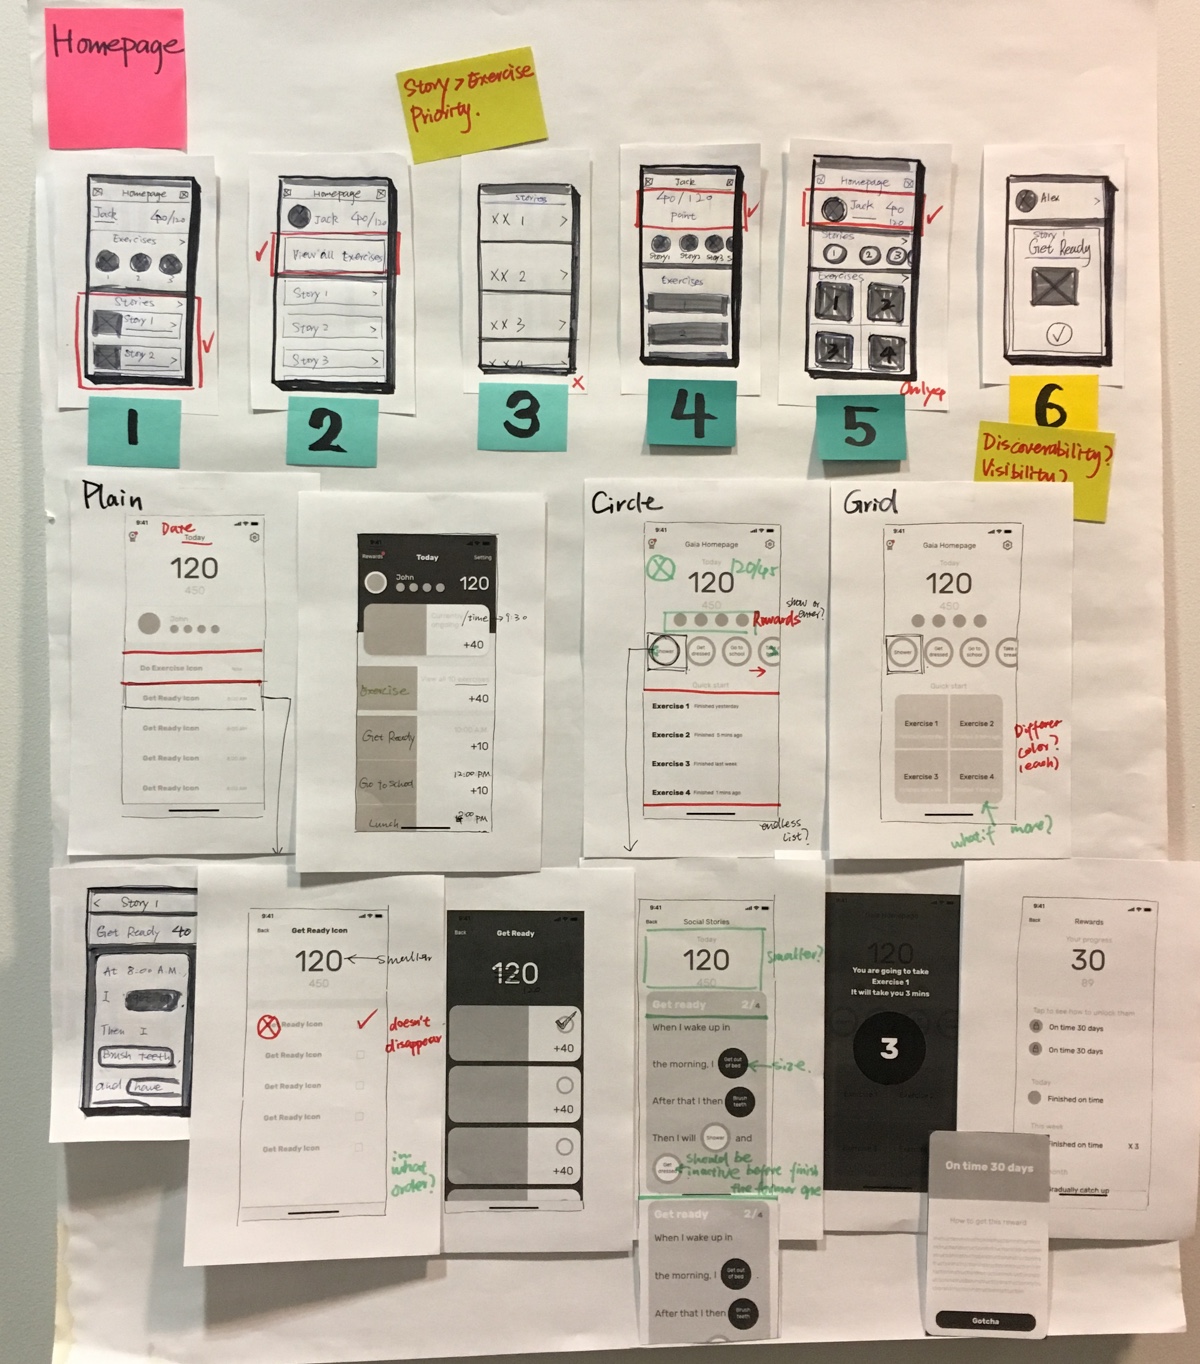 Homepage
Story > Exercise
Priority.
Homepage
Jack 40/120
Exercises >
1 2 3
Stories >
Story 1 >
Story 2 >
Homepage
Jack 40/120
View all Exercises
Story 1 >
Story 2 >
Story 3 >
Stories
XX 1 >
XX 2 >
XX 3 >
Jack
40/120
point
Story1 Story2 Story3 S
Exercises
Homepage
Jack 40
120
Stories >
1 2 3
Exercises
1 2
3 4
Only 4
Alex >
Story 1
Get Ready
1
2
3
4
5
6
Discoverability?
Visibility?
Plain
9:41
Date
Today
120
450
John
Do Exercise Icon
Get Ready Icon
Get Ready Icon
Get Ready Icon
Get Ready Icon
Rewards Today Setting
John 120
/time → 9:30
+40
Exercise +40
Get Ready +10
Go to School 12:00 PM
+10
Lunch
Circle
9:41
Gaia Homepage
Today
120 120/45
450
Rewards
show or
enter?
Shower
Get dressed
Go to school
Quick start
Exercise 1 Finished yesterday
Exercise 2 Finished 5 mins ago
Exercise 3 Finished last week
Exercise 4 Finished 7 mins ago
endless
list?
Grid
9:41
Gaia Homepage
Today
120
450
Shower
Get dressed
Go to school
Quick start
Exercise 1 Exercise 2
Exercise 3 Exercise 4
Differen
color?
(each)
what if more?
< Story 1
Get Ready 40
At 8:00 A.M.
I
Then I
Brush teeth.
and have
9:41
Back Get Ready Icon
120 ← smaller
450
Ready Icon
doesn't
disappear
Get Ready Icon
Get Ready Icon
Get Ready Icon
Get Ready Icon
in
what
order?
9:41
Back Get Ready
120
+40
+40
+40
9:41
Back Social Stories
Today
120
450
smaller?
Get ready 2/4
When I wake up in
the morning, I Get out of bed
← size.
After that I then Brush teeth
Then I will Shower and
Get dressed
should be
inactive before finish
the former one
Get ready 2/4
When I wake up in
the morning, I Get out of bed .
After that I then Brush teeth
120
You are going to take
Exercise 1
It will take you 3 mins
3
9:41
Back Rewards
Your progress
30
89
Tap to see how to unlock them
On time 30 days
On time 30 days
Today
Finished on time
This week
inished on time X 3
onth
radually catch up
On time 30 days
How to get this reward
Gotcha